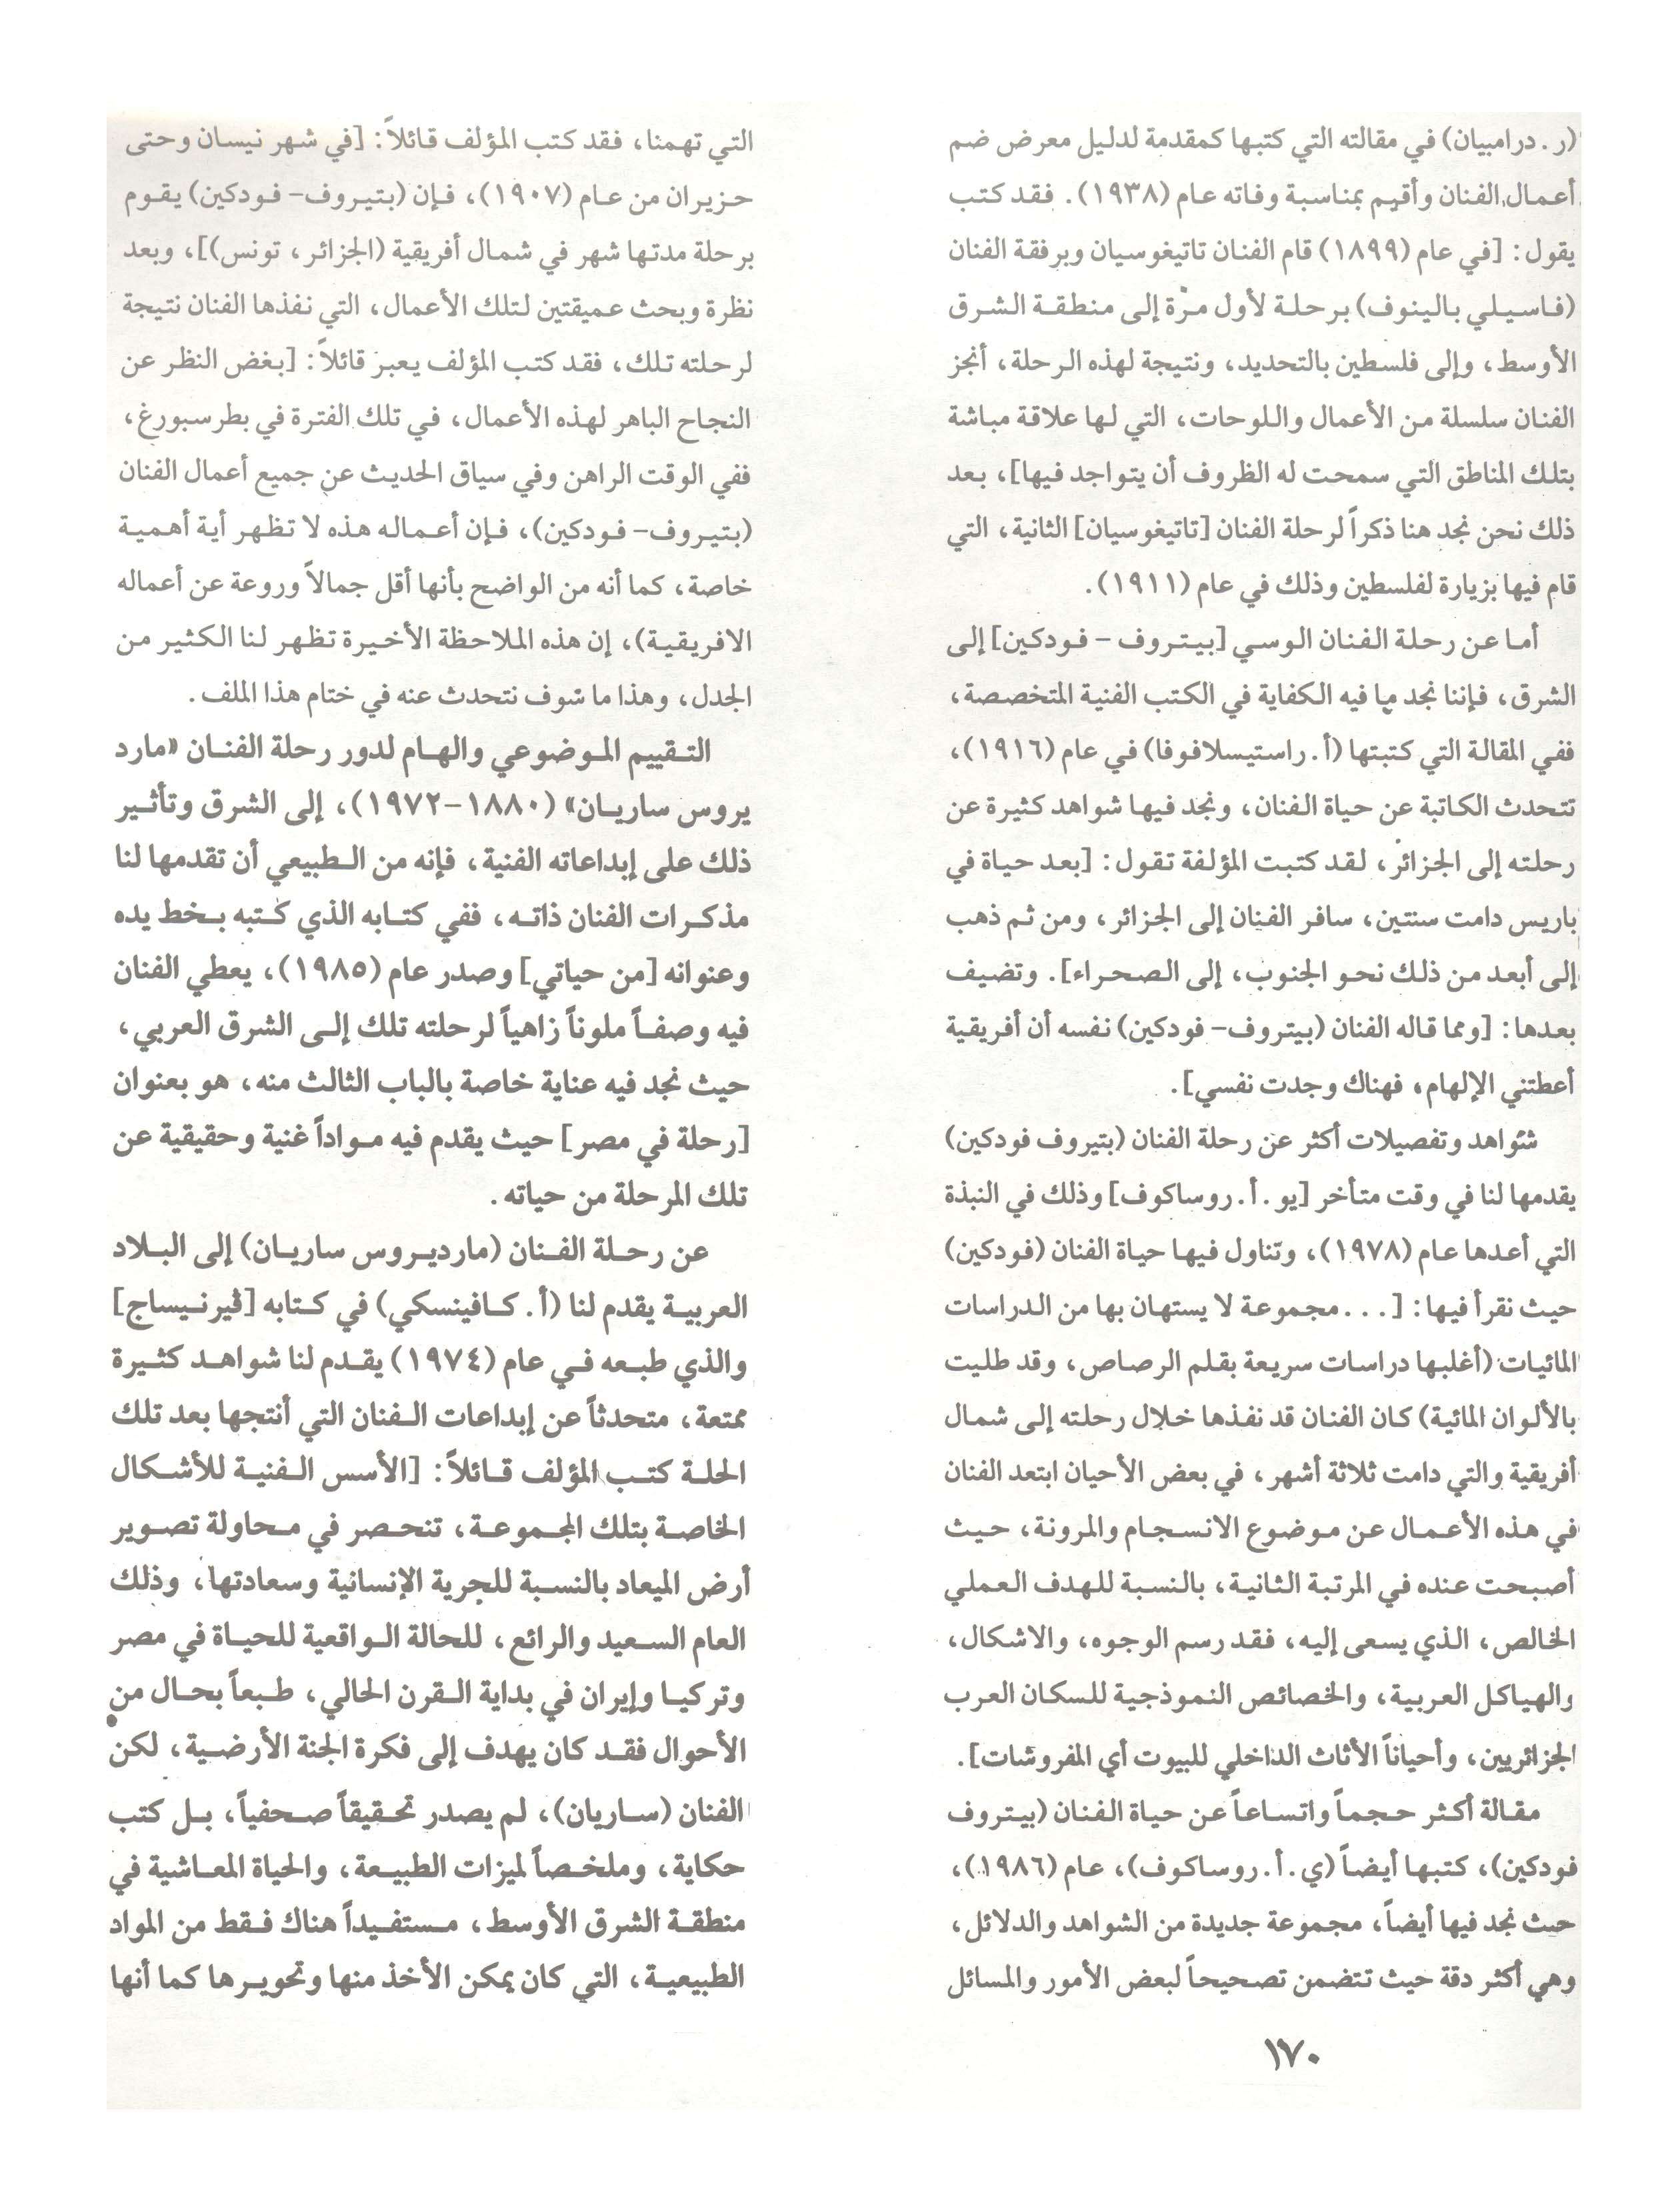 (ر. درامبيان) في مقالته التي كتبها كمقدمة لدليل معرض ضم
أعمال الفنان وأقيم بمناسبة وفاته عام (١٩٣٨). فقد كتب
يقول: [في عام (١٨٩٩) قام الفنان تاتيغوسيان وبرفقة الفنان
(فاسيلي بالينوف) برحلة لأول مرّة إلى منطقة الشرق
الأوسط، وإلى فلسطين بالتحديد، ونتيجة لهذه الرحلة، أنجز
الفنان سلسلة من الأعمال واللوحات، التي لها علاقة مباشة
بتلك المناطق التي سمحت له الظروف أن يتواجد فيها]، بعد
ذلك نحن نجد هنا ذكراً لرحلة الفنان [تاتيغوسيان] الثانية، التي
قام فيها بزيارة لفلسطين وذلك في عام (١٩١١).
أما عن رحلة الفنان الوسي [بيتروف - فودكين] إلى
الشرق، فإننا نجد ما فيه الكفاية في الكتب الفنية المتخصصة،
ففي المقالة التي كتبتها (أ. راستيسلافوفا) في عام (١٩١٦)،
تتحدث الكاتبة عن حياة الفنان، ونجد فيها شواهد كثيرة عن
رحلته إلى الجزائر، لقد كتبت المؤلفة تقول: [بعد حياة في
باريس دامت سنتين، سافر الفنان إلى الجزائر، ومن ثم ذهب
إلى أبعد من ذلك نحو الجنوب، إلى الصحراء]. وتضيف
بعدها: [ومما قاله الفنان (بيتروف- فودكين) نفسه أن أفريقية
أعطتني الإلهام، فهناك وجدت نفسي].
شواهد وتفصيلات أكثر عن رحلة الفنان (بتيروف فودكين)
يقدمها لنا في وقت متأخر [يو. أ. روساكوف] وذلك في النبذة
التي أعدها عام (١٩٧٨)، وتناول فيها حياة الفنان (فودكين)
حيث نقرأ فيها: [... مجموعة لا يستهان بها من الدراسات
المائيات (أغلبها دراسات سريعة بقلم الرصاص، وقد طليت
بالألوان المائية) كان الفنان قد نفذها خلال رحلته إلى شمال
أفريقية والتي دامت ثلاثة أشهر، في بعض الأحيان ابتعد الفنان
في هذه الأعمال عن موضوع الانسجام والمرونة، حيث
أصبحت عنده في المرتبة الثانية، بالنسبة للهدف العملي
الخالص، الذي يسعى إليه، فقد رسم الوجوه، والاشكال،
والهياكل العربية، والخصائص النموذجية للسكان العرب
الجزائريين، وأحياناً الأثاث الداخلي للبيوت أي المفروشات].
مقالة أكثر حجماً واتساعاً عن حياة الفنان (بيتروف
فودكين)، كتبها أيضاً (ي. أ. روساكوف)، عام (١٩٨٦)،
حيث نجد فيها أيضاً، مجموعة جديدة من الشواهد والدلائل،
وهي أكثر دقة حيث تتضمن تصحيحاً لبعض الأمور والمسائل
التي تهمنا، فقد كتب المؤلف قائلاً: [في شهر نيسان وحتى
حزيران من عام (١٩٠٧)، فإن (بتيروف- فودكين) يقوم
برحلة مدتها شهر في شمال أفريقية (الجزائر، تونس)]، وبعد
نظرة وبحث عميقتين لتلك الأعمال، التي نفذها الفنان نتيجة
لرحلته تلك، فقد كتب المؤلف يعبر قائلاً: [بغض النظر عن
النجاح الباهر لهذه الأعمال، في تلك الفترة في بطرسبورغ،
ففي الوقت الراهن وفي سياق الحديث عن جميع أعمال الفنان
(بتيروف- فودكين)، فإن أعماله هذه لا تظهر أية أهمية
خاصة، كما أنه من الواضح بأنها أقل جمالاً وروعة عن أعماله
الافريقية)، إن هذه الملاحظة الأخيرة تظهر لنا الكثير من
الجدل، وهذا ما سوف نتحدث عنه في ختام هذا الملف.
التقييم الموضوعي والهام لدور رحلة الفنان «مارد
يروس ساريان» (١٨٨٠-١٩٧٢)، إلى الشرق وتأثير
ذلك على إبداعاته الفنية، فإنه من الطبيعي أن تقدمها لنا
مذكرات الفنان ذاته، ففي كتابه الذي كتبه بخط يده
وعنوانه [من حياتي] وصدر عام (١٩٨٥)، يعطي الفنان
فيه وصفاً ملوناً زاهياً لرحلته تلك إلى الشرق العربي،
حيث نجد فيه عناية خاصة بالباب الثالث منه، هو بعنوان
[رحلة في مصر] حيث يقدم فيه مواداً غنية وحقيقية عن
تلك المرحلة من حياته.
عن رحلة الفنان (مارديروس ساريان) إلى البلاد
العربية يقدم لنا (أ. كافينسكي) في كتابه [ڤيرنيساج]
والذي طبعه في عام (١٩٧٤) يقدم لنا شواهد كثيرة
ممتعة، متحدثاً عن إبداعات الفنان التي أنتجها بعد تلك
الحلة كتب المؤلف قائلاً: [الأسس الفنية للأشكال
الخاصة بتلك المجموعة، تنحصر في محاولة تصوير
أرض الميعاد بالنسبة للحرية الإنسانية وسعادتها، وذلك
العام السعيد والرائع، للحالة الواقعية للحياة في مصر
وتركيا وإيران في بداية القرن الحالي، طبعاً بحال من
الأحوال فقد كان يهدف إلى فكرة الجنة الأرضية، لكن
الفنان (ساريان)، لم يصدر تحقيقاً صحفياً، بل كتب
حكاية، وملخصاً لميزات الطبيعة، والحياة المعاشية في
منطقة الشرق الأوسط، مستفيداً هناك فقط من المواد
الطبيعية، التي كان يمكن الأخذ منها وتحويرها كما أنها
١٧٠